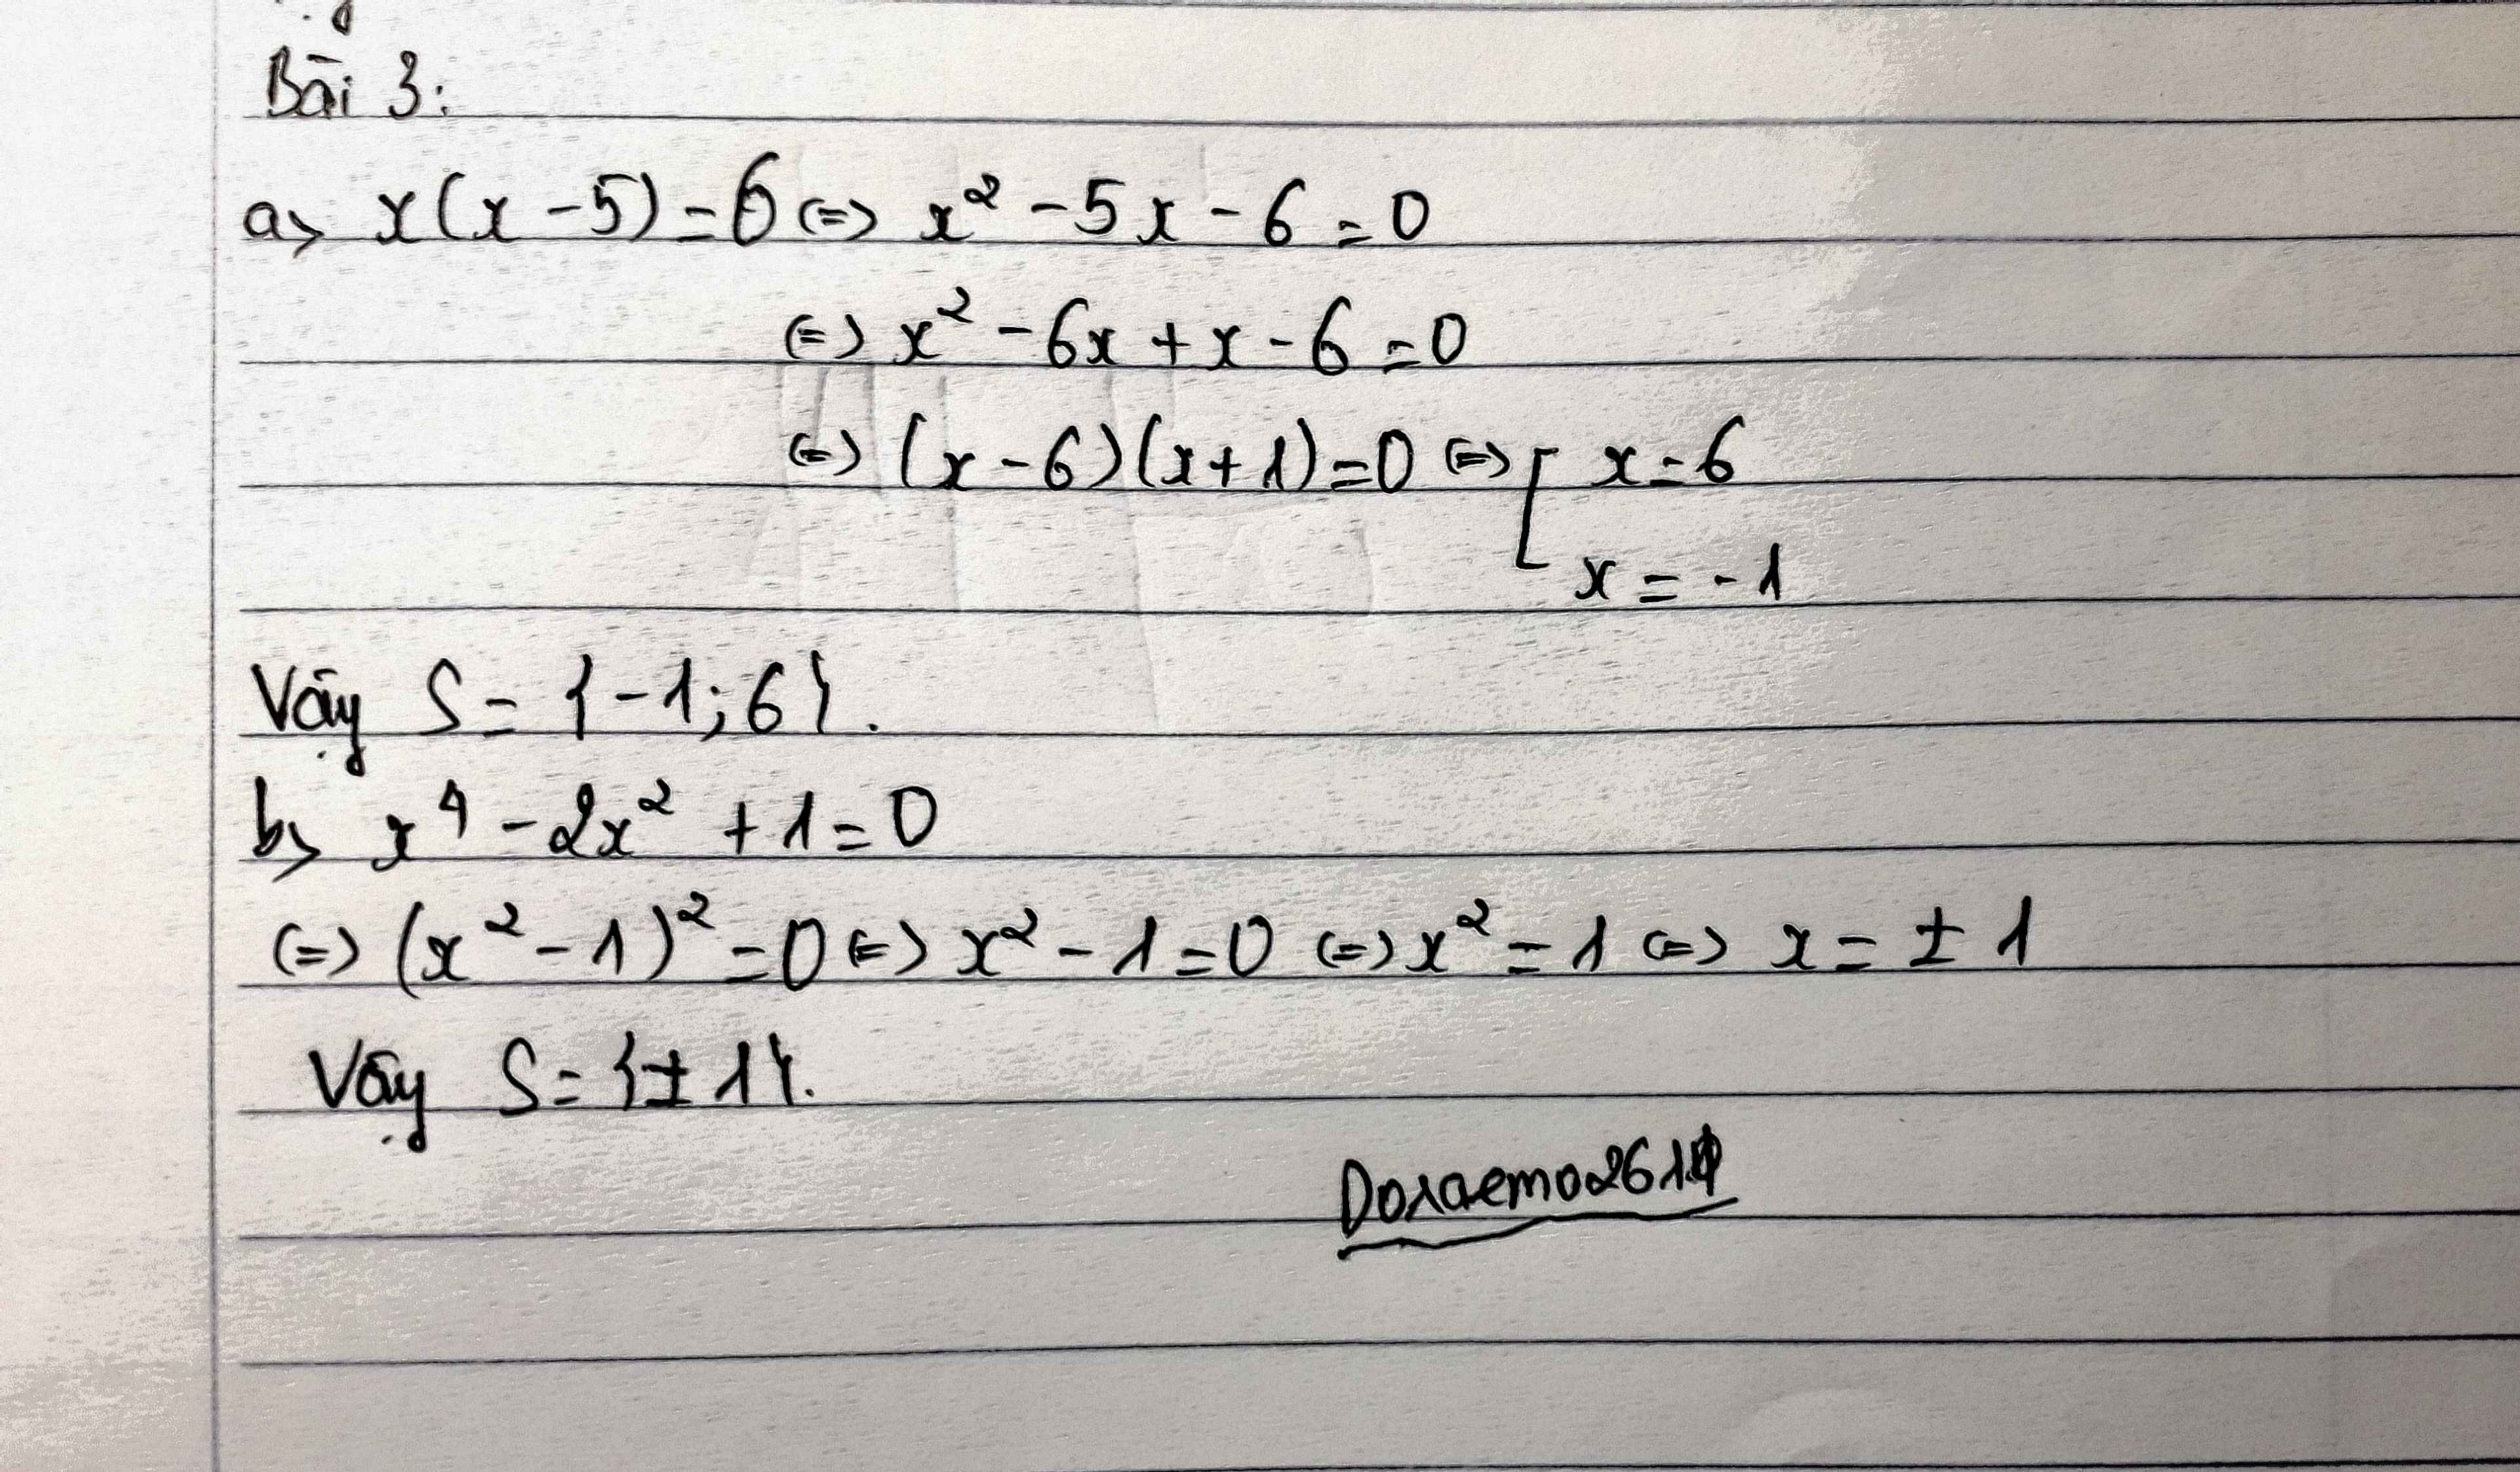 Bài 3:
a) x(x-5)=6 <=> x² - 5x - 6 = 0
<=> x² - 6x + x - 6 = 0
<=> (x-6)(x+1)=0 <=> [ x=6
x = -1
Vậy S = {-1;6}.
b) x⁴ - 2x² + 1 = 0
<=> (x² - 1)² = 0 <=> x² - 1 = 0 <=> x² = 1 <=> x = ± 1
Vậy S = {± 1}.